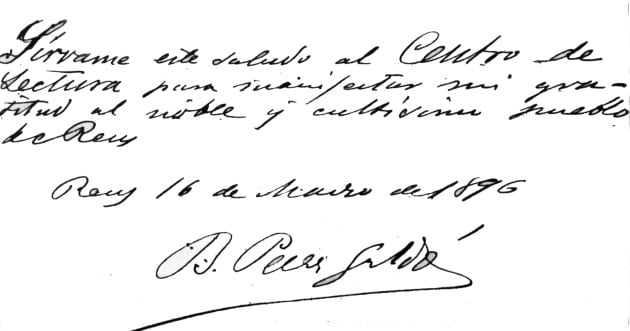 Sírvame este saludo al Centro de
Lectura para manifestar mi gra-
titud al noble y cultísimo pueblo
de Reus
Reus 16 de Marzo de 1896
B. Perez Galdós